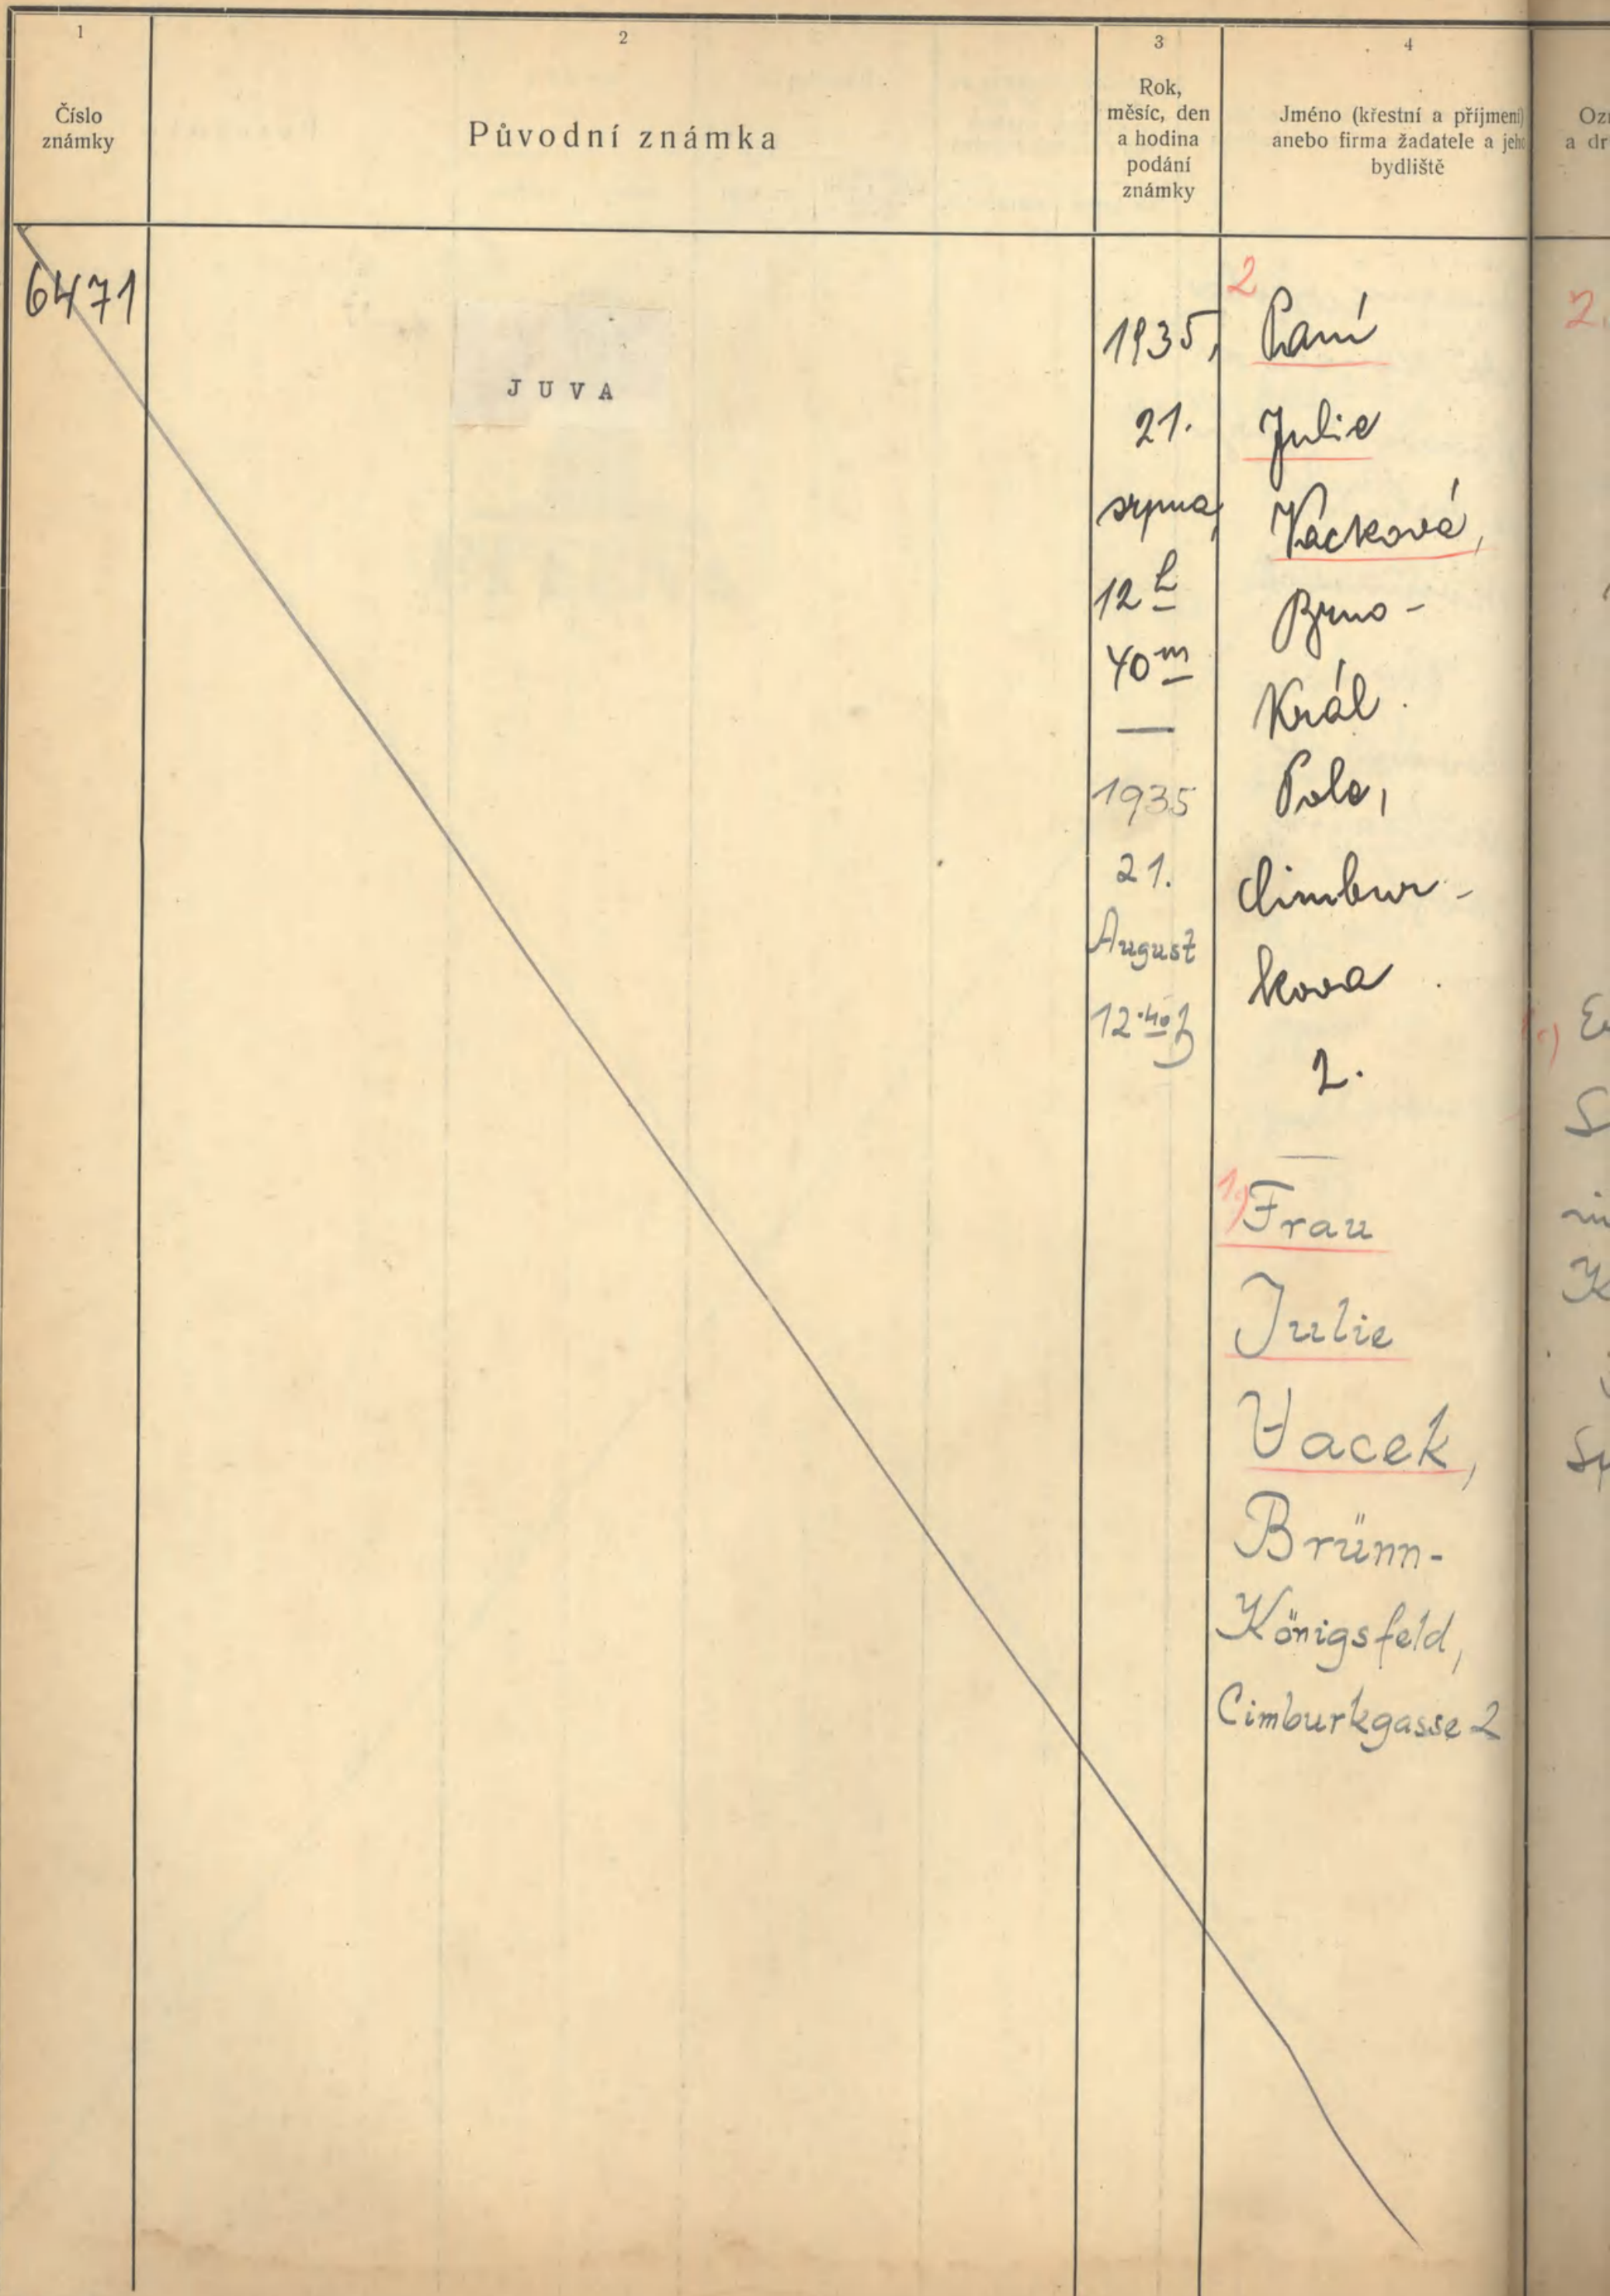 1
Číslo
známky
2
Původní známka
3
Rok,
měsíc, den
a hodina
podání
známky
4
Jméno (křestní a příjmení)
anebo firma žadatele a jeho
bydliště
Oz
a dr
6471
JUVA
1935,
21.
srpna,
12 h
40 m
—
1935
21.
August
12.40 h
2
Paní
Julie
Vacková,
Brno -
Král.
Pole,
Cimbur-
kova
2.
—
1)
Frau
Julie
Vacek,
Brünn-
Königsfeld,
Cimburkgasse 2
2.